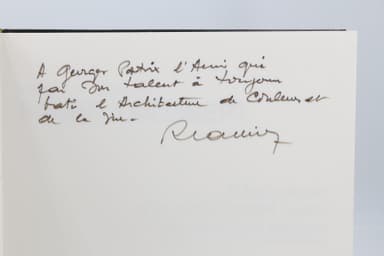 A Georges Patrix l'Ami qui
par son talent à toujours
bati l'Architecture de Couleurs et
de la Vie.-